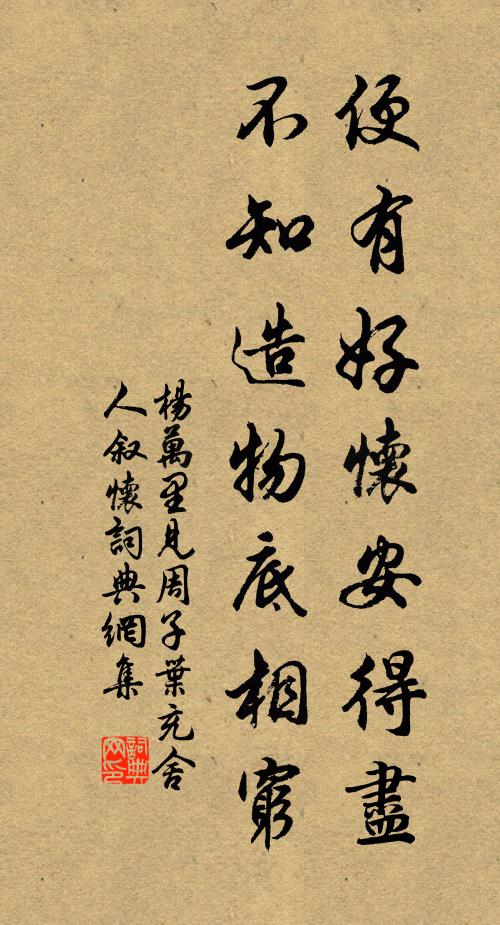 便有好懷安得盡
不知造物底相窮
楊萬里見周子葉充舍
人叙懷詞典網集
詞典
网印